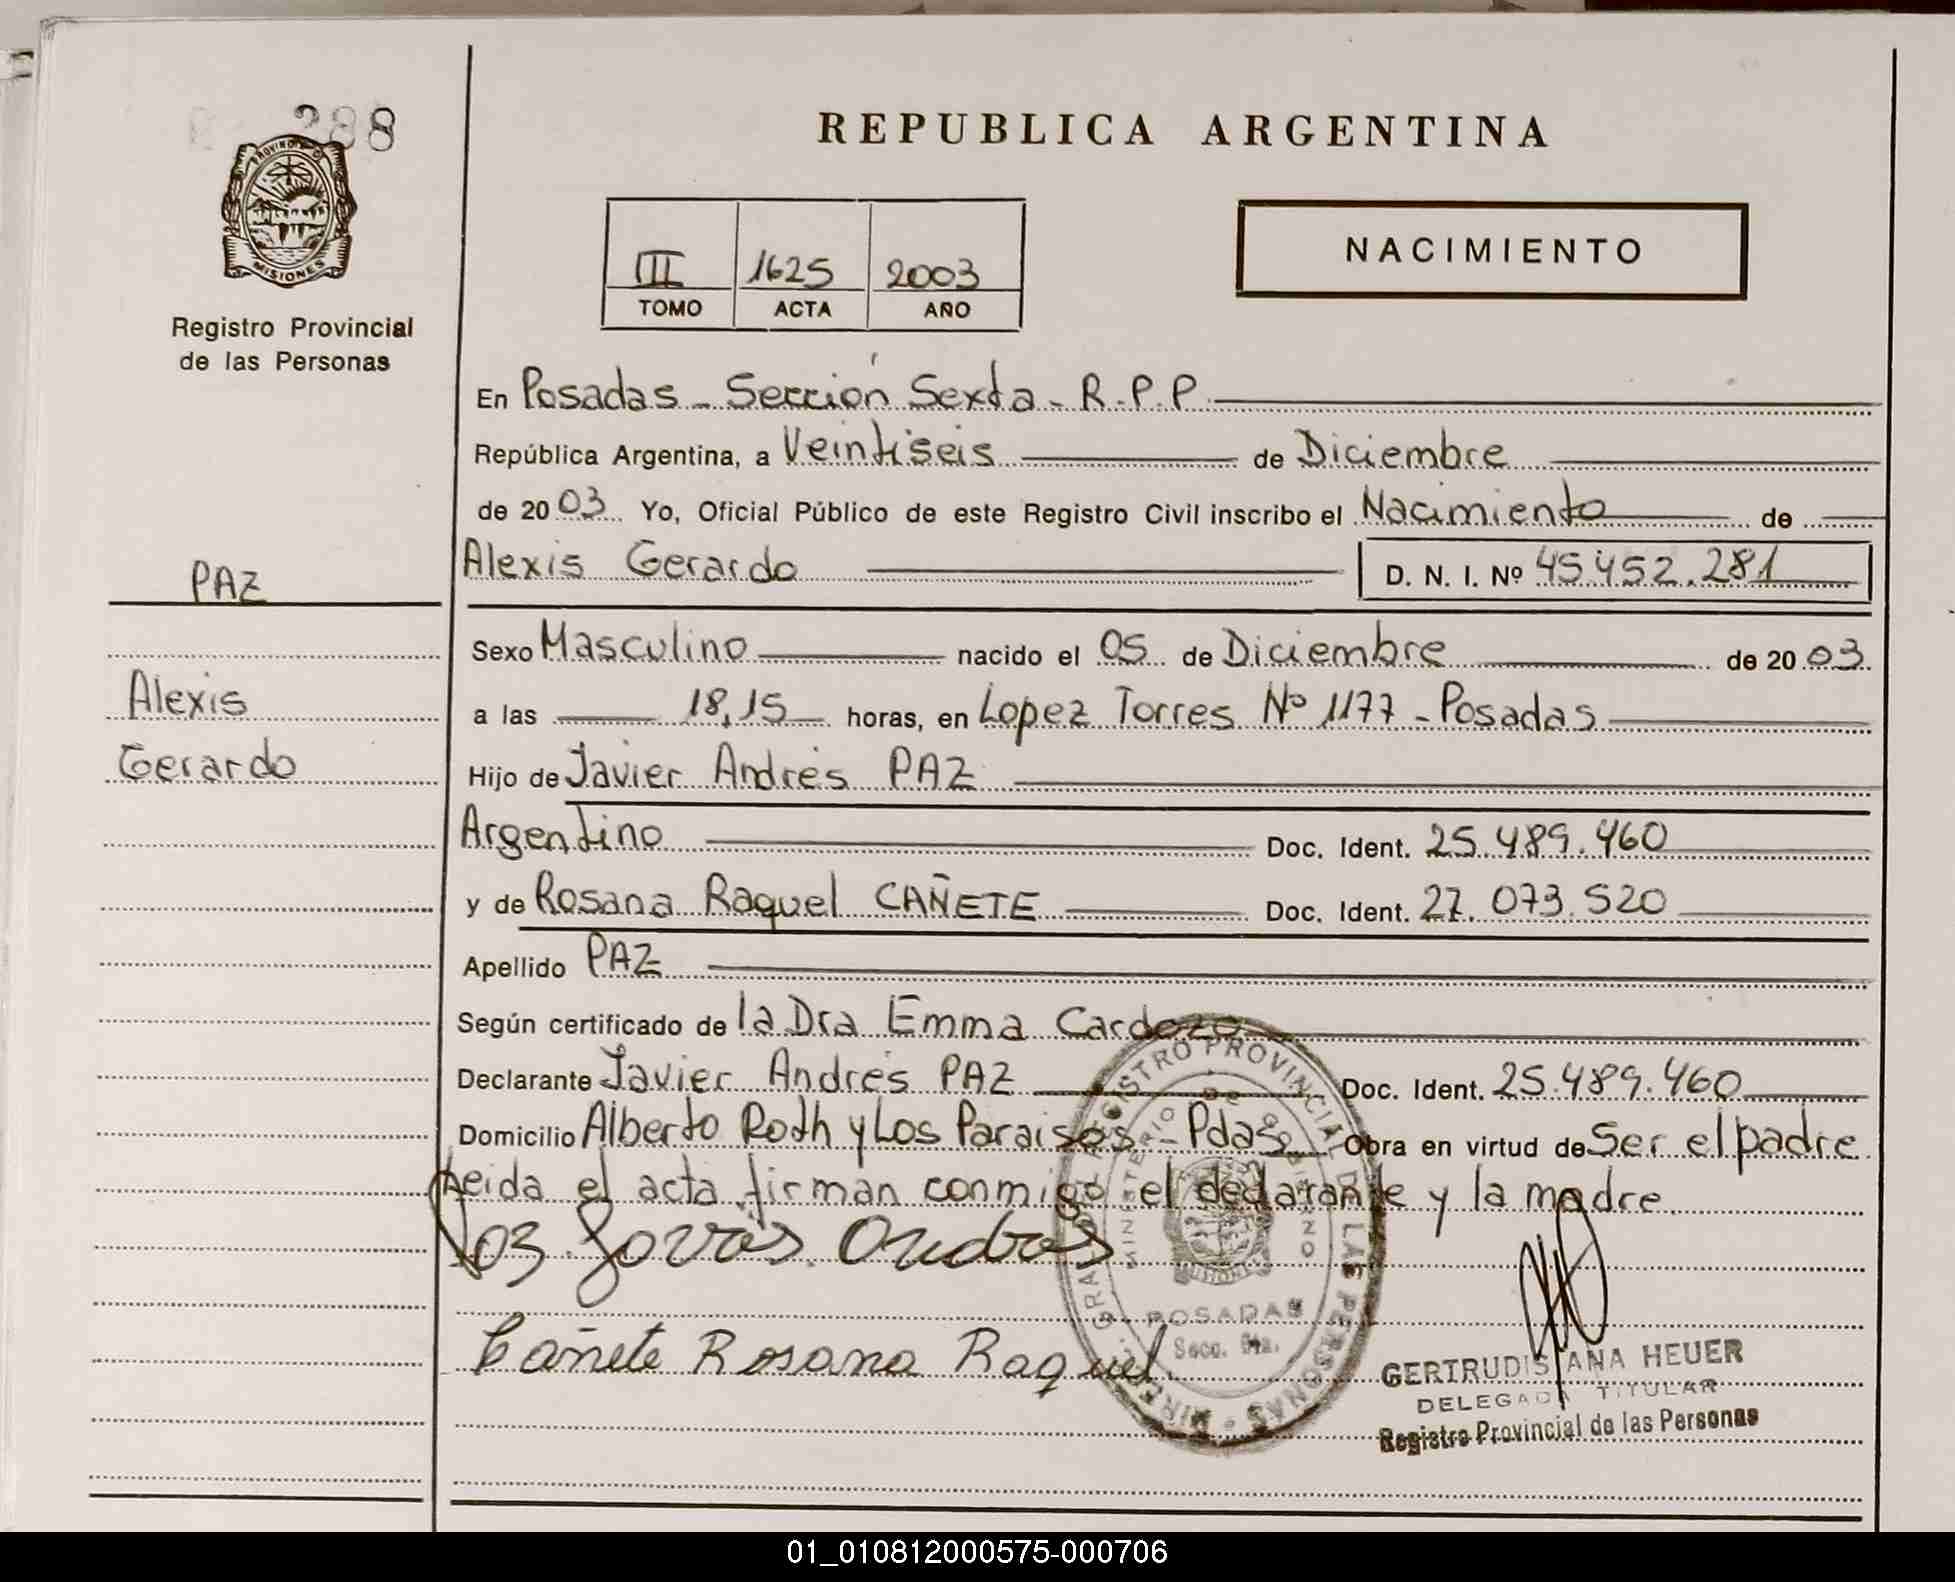 288
PROVINCIA D
MISIONES
Registro Provincial
de las Personas
REPUBLICA ARGENTINA
III 1625 2003
TOMO ACTA AÑO
NACIMIENTO
En Posadas - Sección Sexta - R.P.P.
República Argentina, a Veintiseis de Diciembre
de 2003 Yo, Oficial Público de este Registro Civil inscribo el Nacimiento de
Alexis Gerardo D. N. I. Nº 45.452.281
PAZ
Alexis
Gerardo
Sexo Masculino nacido el 05 de Diciembre de 2003
a las 18,15 horas, en Lopez Torres Nº 1177 - Posadas
Hijo de Javier Andrés PAZ
Argentino Doc. Ident. 25.489.460
y de Rosana Raquel CAÑETE Doc. Ident. 27.073.520
Apellido PAZ
Según certificado de la Dra Emma Cardozo
Declarante Javier Andrés PAZ Doc. Ident. 25.489.460
Domicilio Alberto Roth y Los Paraisos - Pdas. Obra en virtud de Ser el padre
Leida el acta firman conmigo el declarante y la madre.
Cañete Rosana Raquel
REGISTRO PROVINCIAL DE LAS PERSONAS
MINISTERIO DE GOBIERNO
MISIONES
POSADAS
Secc. 6ta.
GERTRUDIS ANA HEUER
DELEGADA TITULAR
Registro Provincial de las Personas
01_010812000575-000706